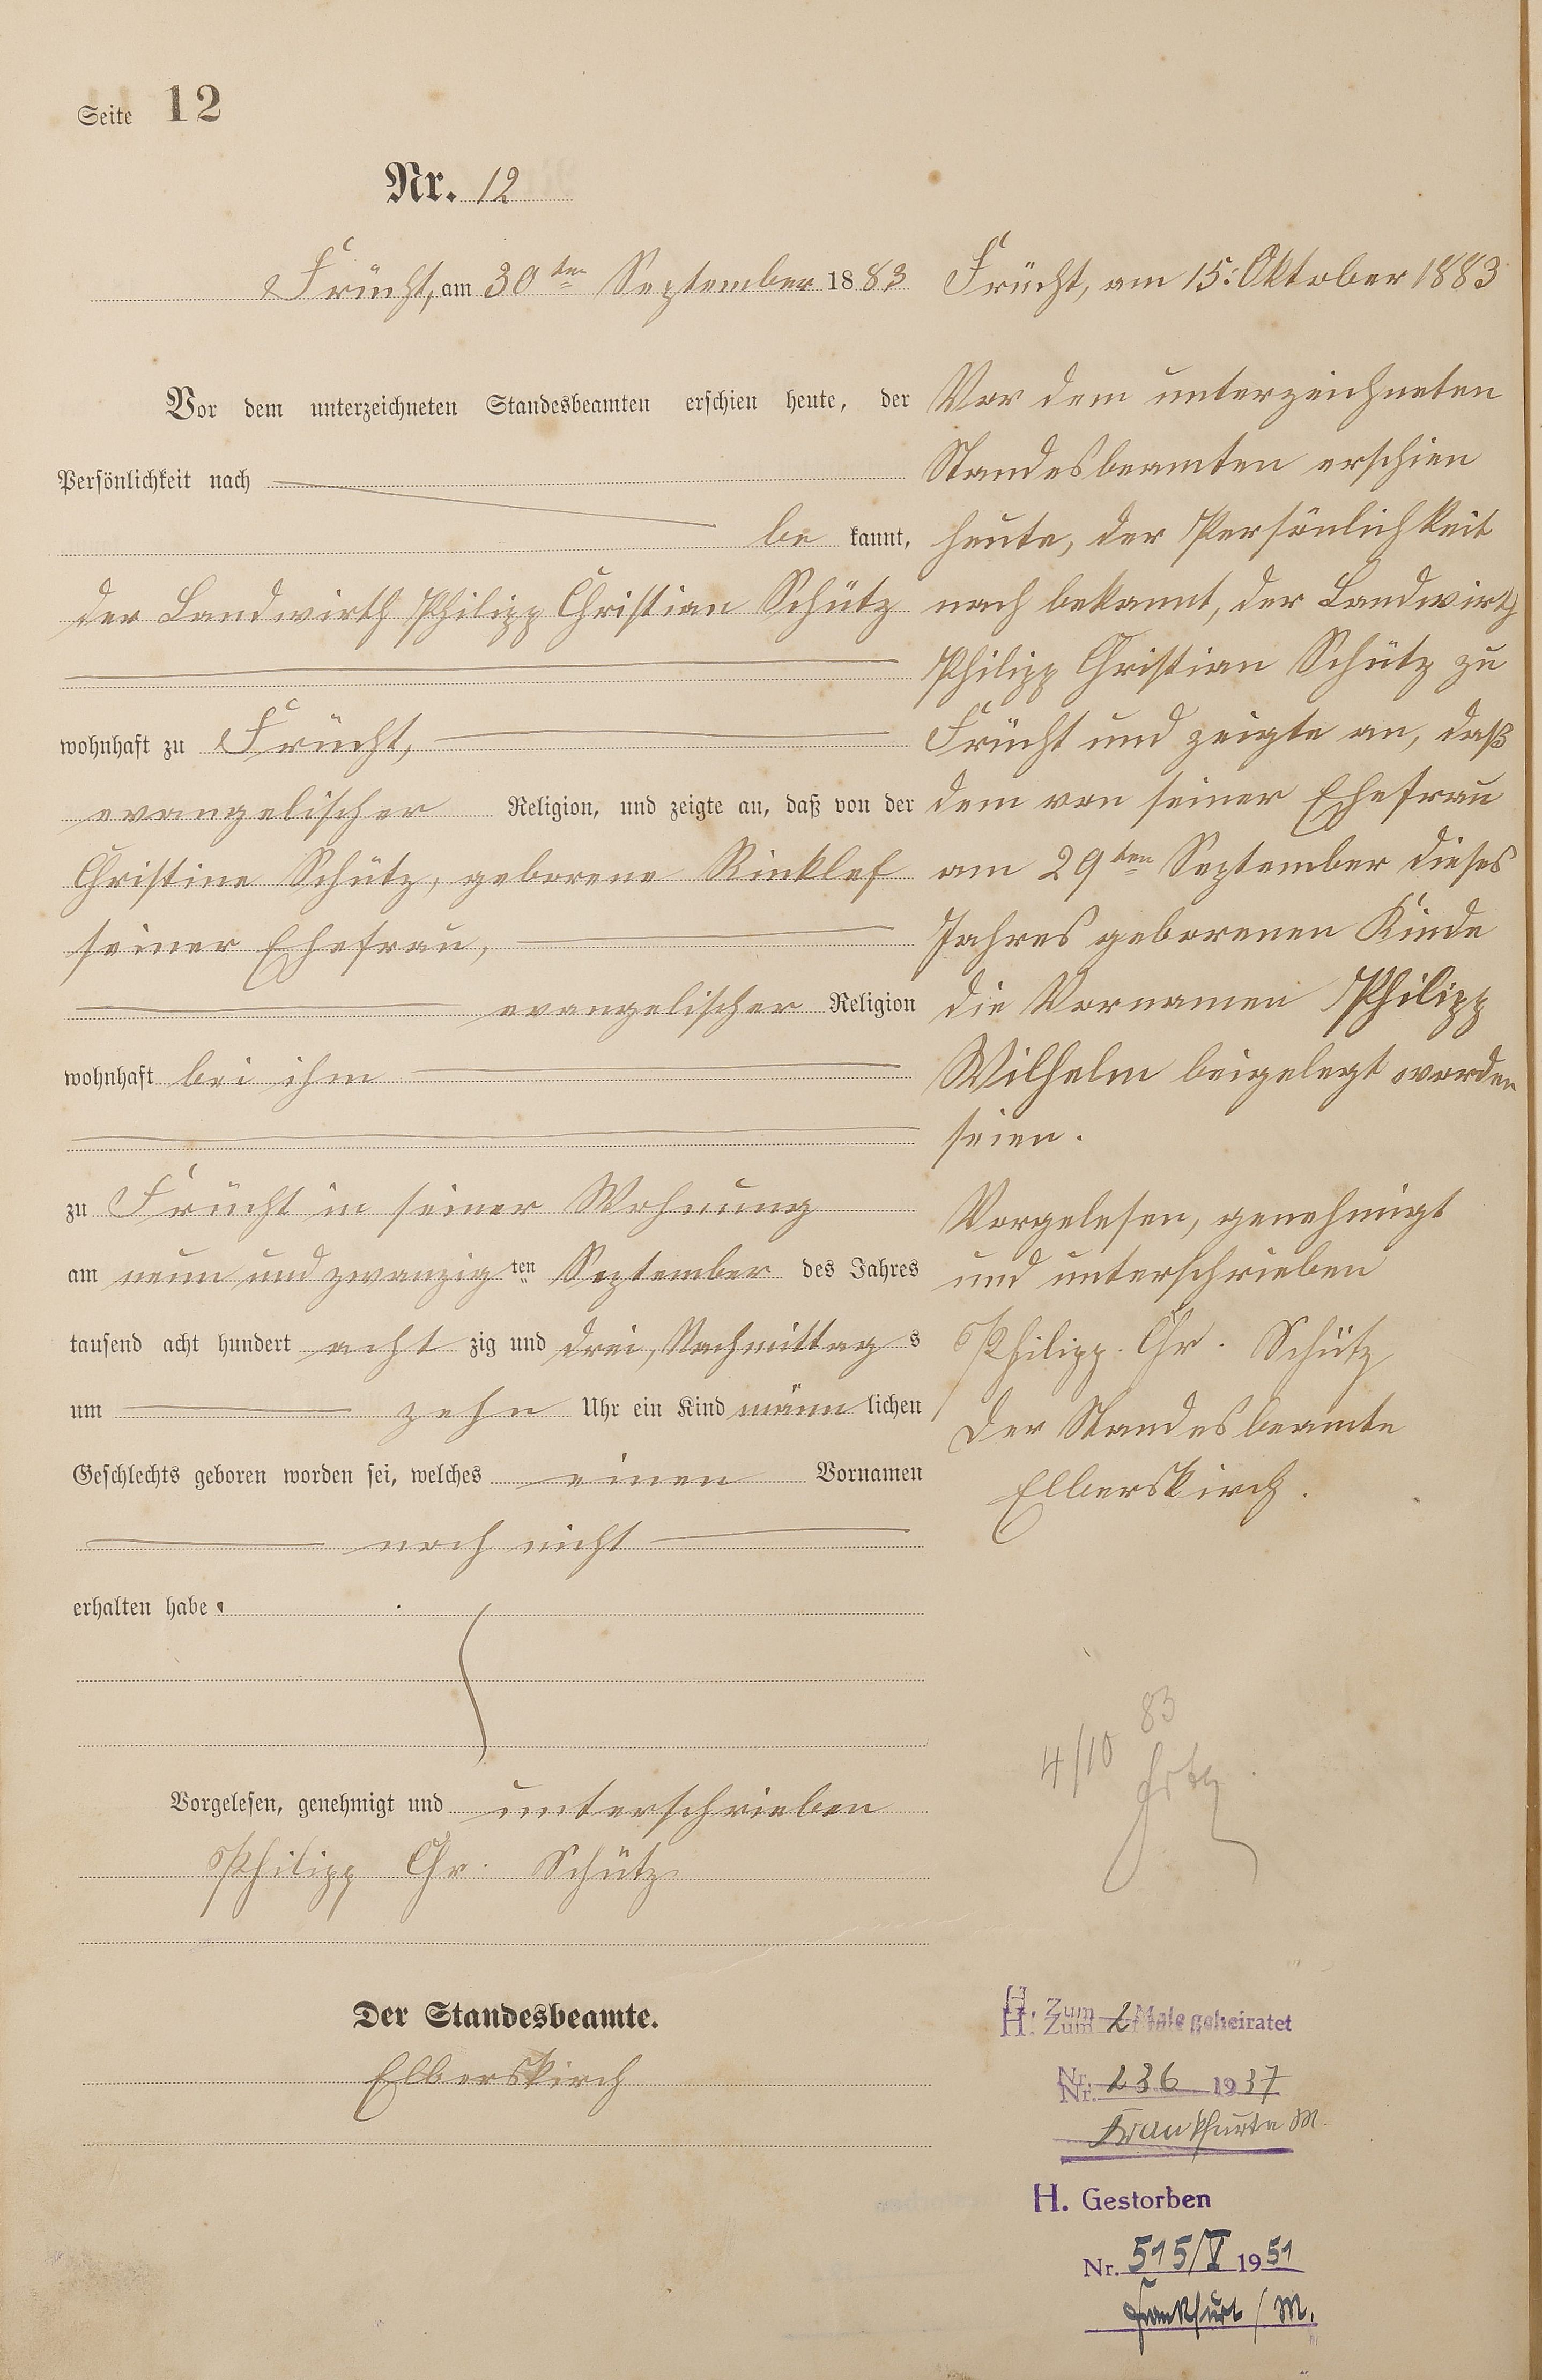 Seite 12
Nr. 12
Frücht, am 30ten September 1883
Vor dem unterzeichneten Standesbeamten erschien heute, der
Persönlichkeit nach
be kannt,
der Landwirth Philipp Christian Schütz
wohnhaft zu Frücht,
evangelischer Religion, und zeigte an, daß von der
Christine Schütz, geborene Rinklef
seiner Ehefrau,
evangelischer Religion
wohnhaft bei ihm
zu Frücht in seiner Wohnung
am neun und zwanzig ten September des Jahres
tausend acht hundert acht zig und drei, Nachmittag s
um zehn Uhr ein Kind männ lichen
Geschlechts geboren worden sei, welches einen Vornamen
noch nicht
erhalten habe.
Vorgelesen, genehmigt und unterschrieben
Philipp Chr. Schütz
Der Standesbeamte.
Elberskirch
Frücht, am 15. Oktober 1883
Vor dem unterzeichneten
Standesbeamten erschien
heute, der Persönlichkeit
nach bekannt, der Landwirth
Philipp Christian Schütz zu
Frücht und zeigte an, daß
dem von seiner Ehefrau
am 29ten September dieses
Jahres geborenen Kinde
die Vornamen Philipp
Wilhelm beigelegt worden
seien.
Vorgelesen, genehmigt
und unterschrieben
Philipp. Chr. Schütz
Der Standesbeamte
Elberskirch.
4/10 83
H. Zum 2 Male geheiratet
Nr. 236 1937
Frankfurt a M.
H. Gestorben
Nr. 515/V 1951
Frankfurt / M.